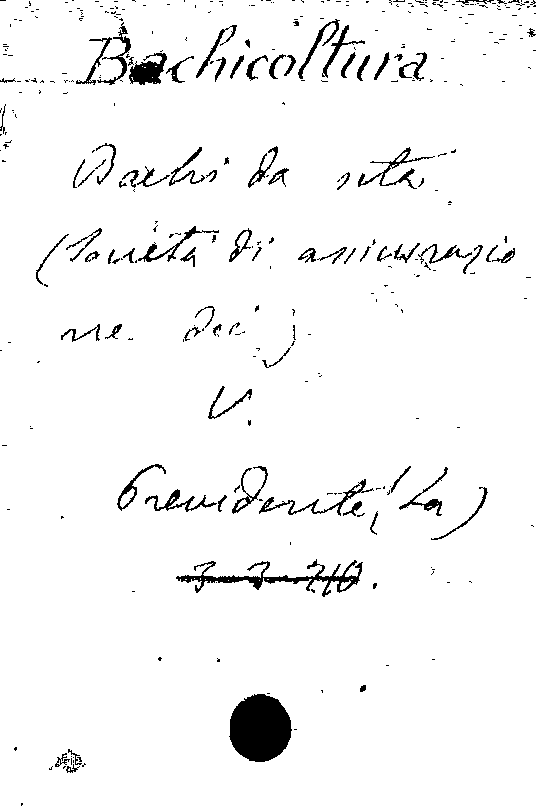 Bachicoltura
Bachi da seta
(Società di assicurazio
ne dei)
V.
Previdente, (La)
3-3-210.